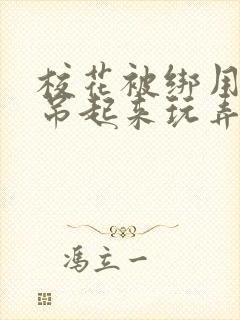 校花被绑用
吊起来玩弄
冯立一